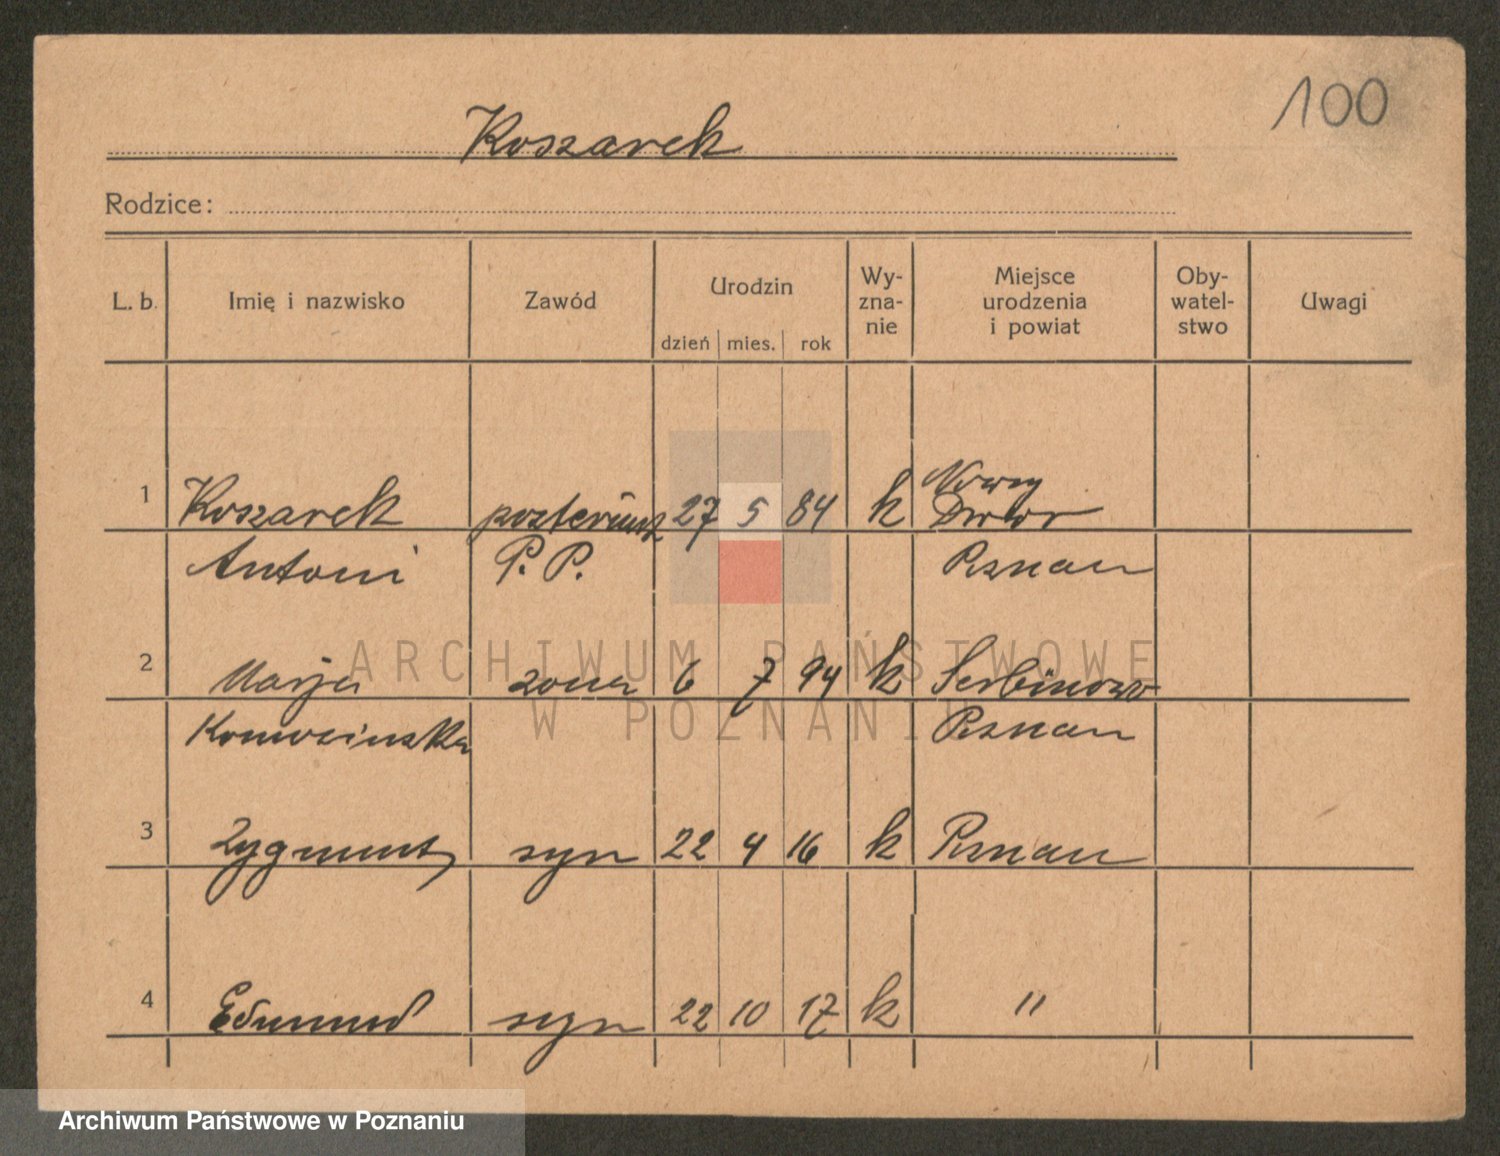 100
Koszarek
Rodzice:
L. b. Imię i nazwisko Zawód Urodzin dzień mies. rok Wy-zna-nie Miejsce urodzenia i powiat Oby-watel-stwo Uwagi
Nowy
1 Koszarek 27 5 84 k Dwór
Antoni P. P. Poznań
ARCHIWUM PAŃSTWOWE
2 Marja żona 6 7 94 k Serbinowo
W POZNANIU
Poznań
3 Zygmunt, syn 22 4 16 k Poznań
4 Edmund syn 22 10 17 k "
Archiwum Państwowe w Poznaniu